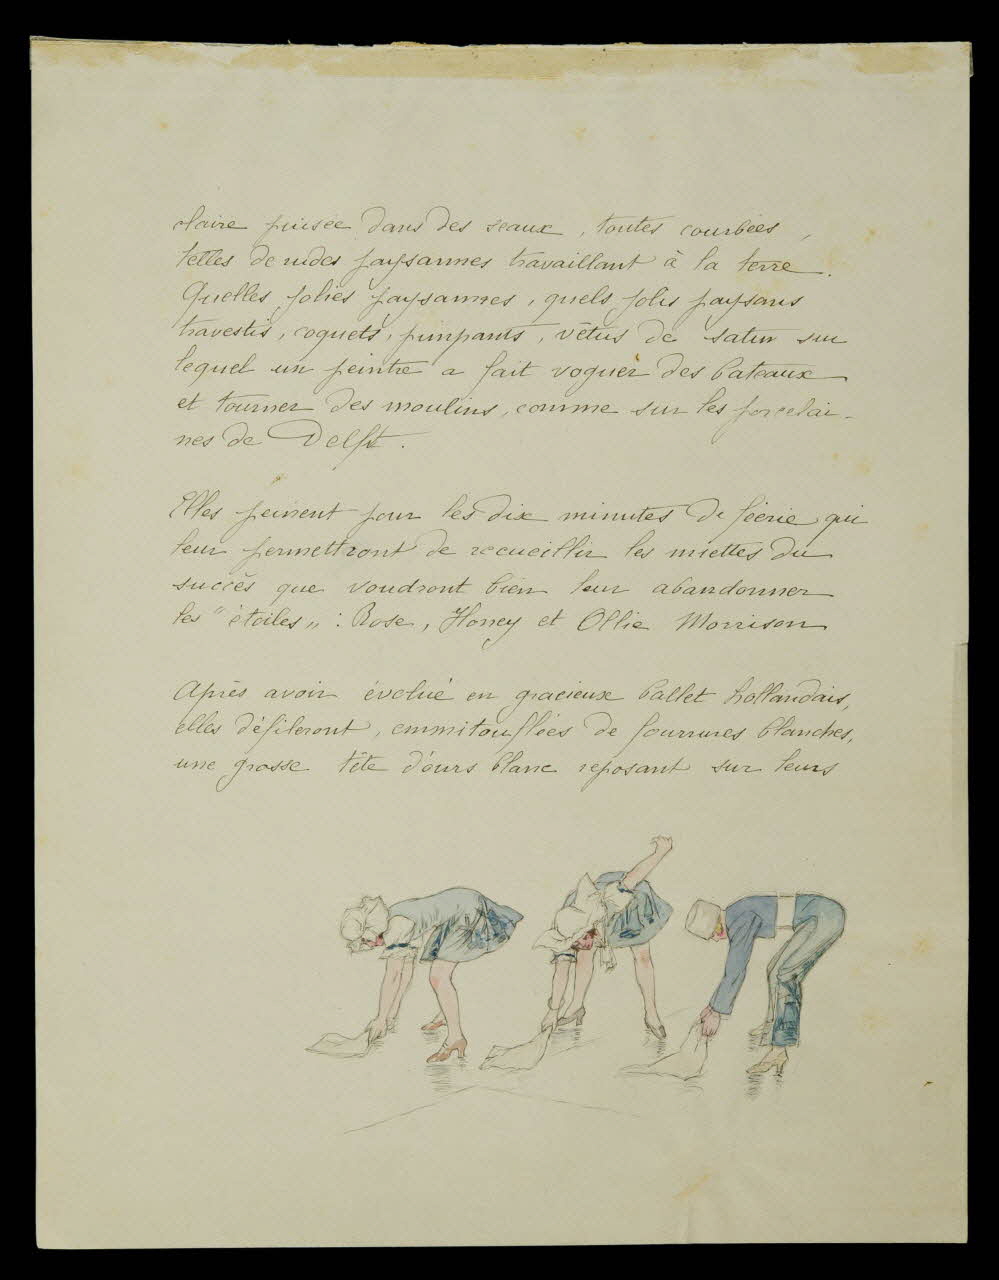 claire puisée dans des seaux, toutes courbées,
telles de rudes paysannes travaillant à la terre.
Quelles jolies paysannes, quels jolis paysans
travestis, coquets, pimpants, vêtus de satin sur
lequel un peintre a fait voguer des bateaux
et tourner des moulins, comme sur les porcelai-
nes de Delft.
Elles peinent pour les dix minutes de féerie qui
leur permettront de recueillir les miettes du
succès que voudront bien leur abandonner
les "étoiles„ : Rose, Honey et Ollie Morrison
Après avoir évolué en gracieux ballet hollandais,
elles défileront, emmitouflées de fourrures blanches,
une grosse tête d'ours blanc reposant sur leurs